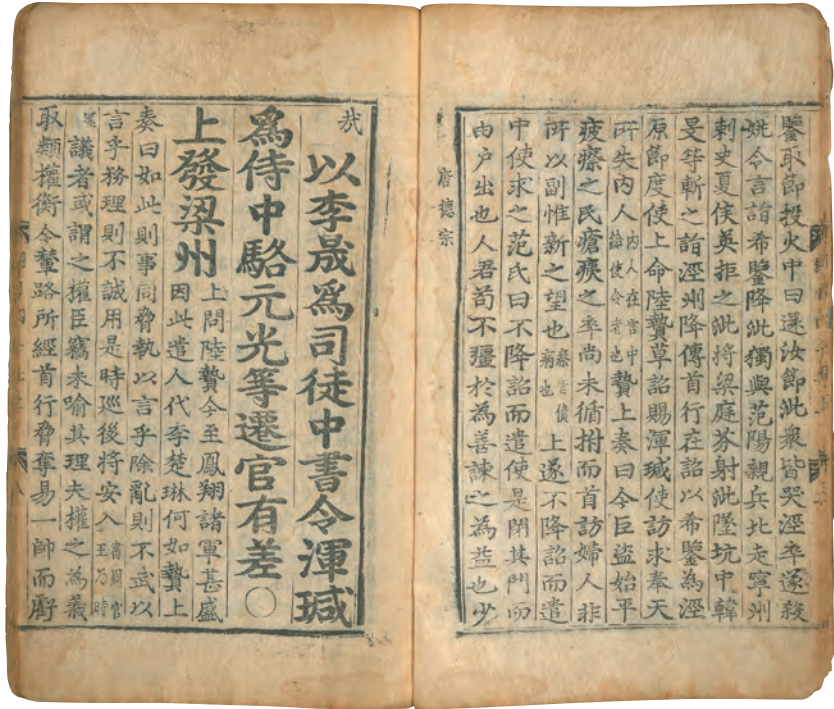 鑒取節投火中曰還汝節泚衆皆哭涇卒遂殺
姚令言詣希鑒降泚獨與范陽親兵北走寧州
刺史夏侯英拒之泚將梁庭芬射泚墜坑中韓
旻等斬之詣涇州降傳首行在詔以希鑒為涇
原節度使上命陸贄草詔賜渾瑊使訪求奉天
所失内人内人在宫中給使令者也贄上奏曰今巨盜始平
疲瘵之民瘡痍之卒尚未循拊而首訪婦人非
所以副惟新之望也瘵病也上遂不降詔而遣
中使求之范氏曰不降詔而遣使是閉其門而
由户出也人君苟不彊於為善諫之為益也少
唐德宗
哉
以李晟爲司徒中書令渾瑊
爲侍中駱元光等遷官有差〇
上發梁州上問陸贄今至鳳翔諸軍甚盛
因此遣人代李楚琳何如贄上
奏曰如此則事同脅執以言乎除亂則不武以
言乎務理則不誠用是時巡後將安入書周官王乃時
議者或謂之權臣竊未喻其理夫權之為義
取類權衡今輦路所經首行脅奪易一帥而虧